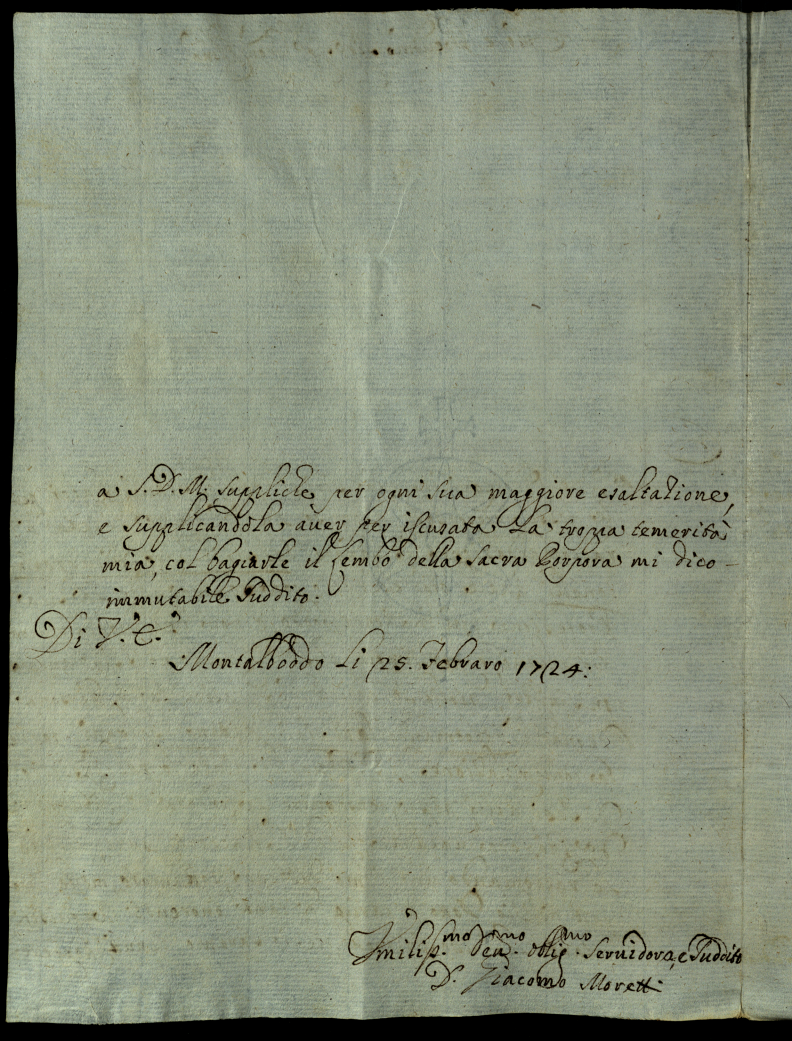 a S. D. M. suppliche per ogni sua maggiore esaltazione,
e supplicandola auer per iscusata la troppa temerità
mia, col bagiarle il lembo della sacra Porpora mi dico
immutabile Suddito.
Di V. E.
Montalboddo li 25. Febraro 1724:
Umiliss.mo Deu.mo oblig.mo Seruidore, e Suddito
D. Giacomo Moretti